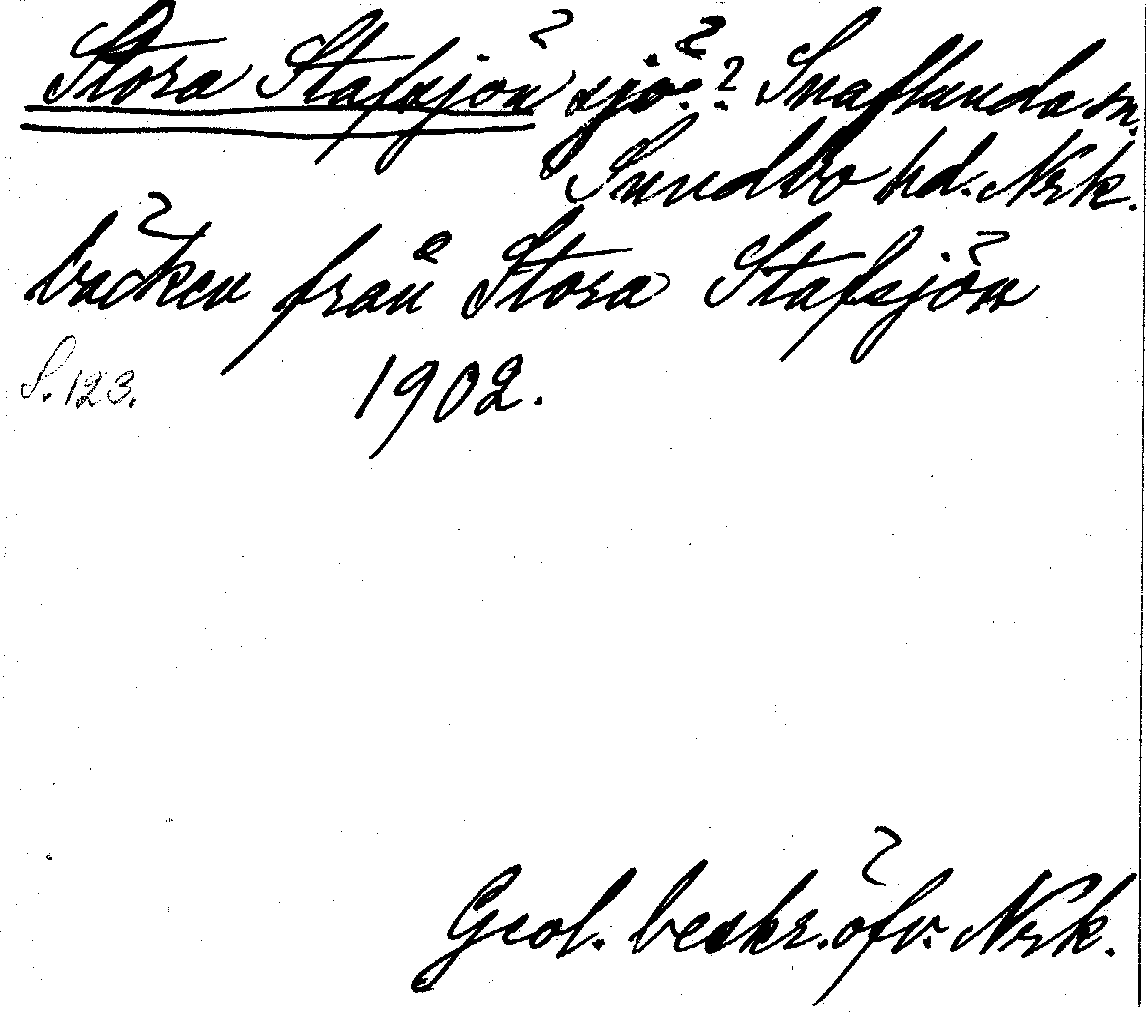 Stora Stafsjön sjö?? Snaflunda sn.
Sundbo hd. Nrk.
bäcken från Stora Stafsjön
S. 123. 1902.
Geol. beskr. öfv. Nrk.